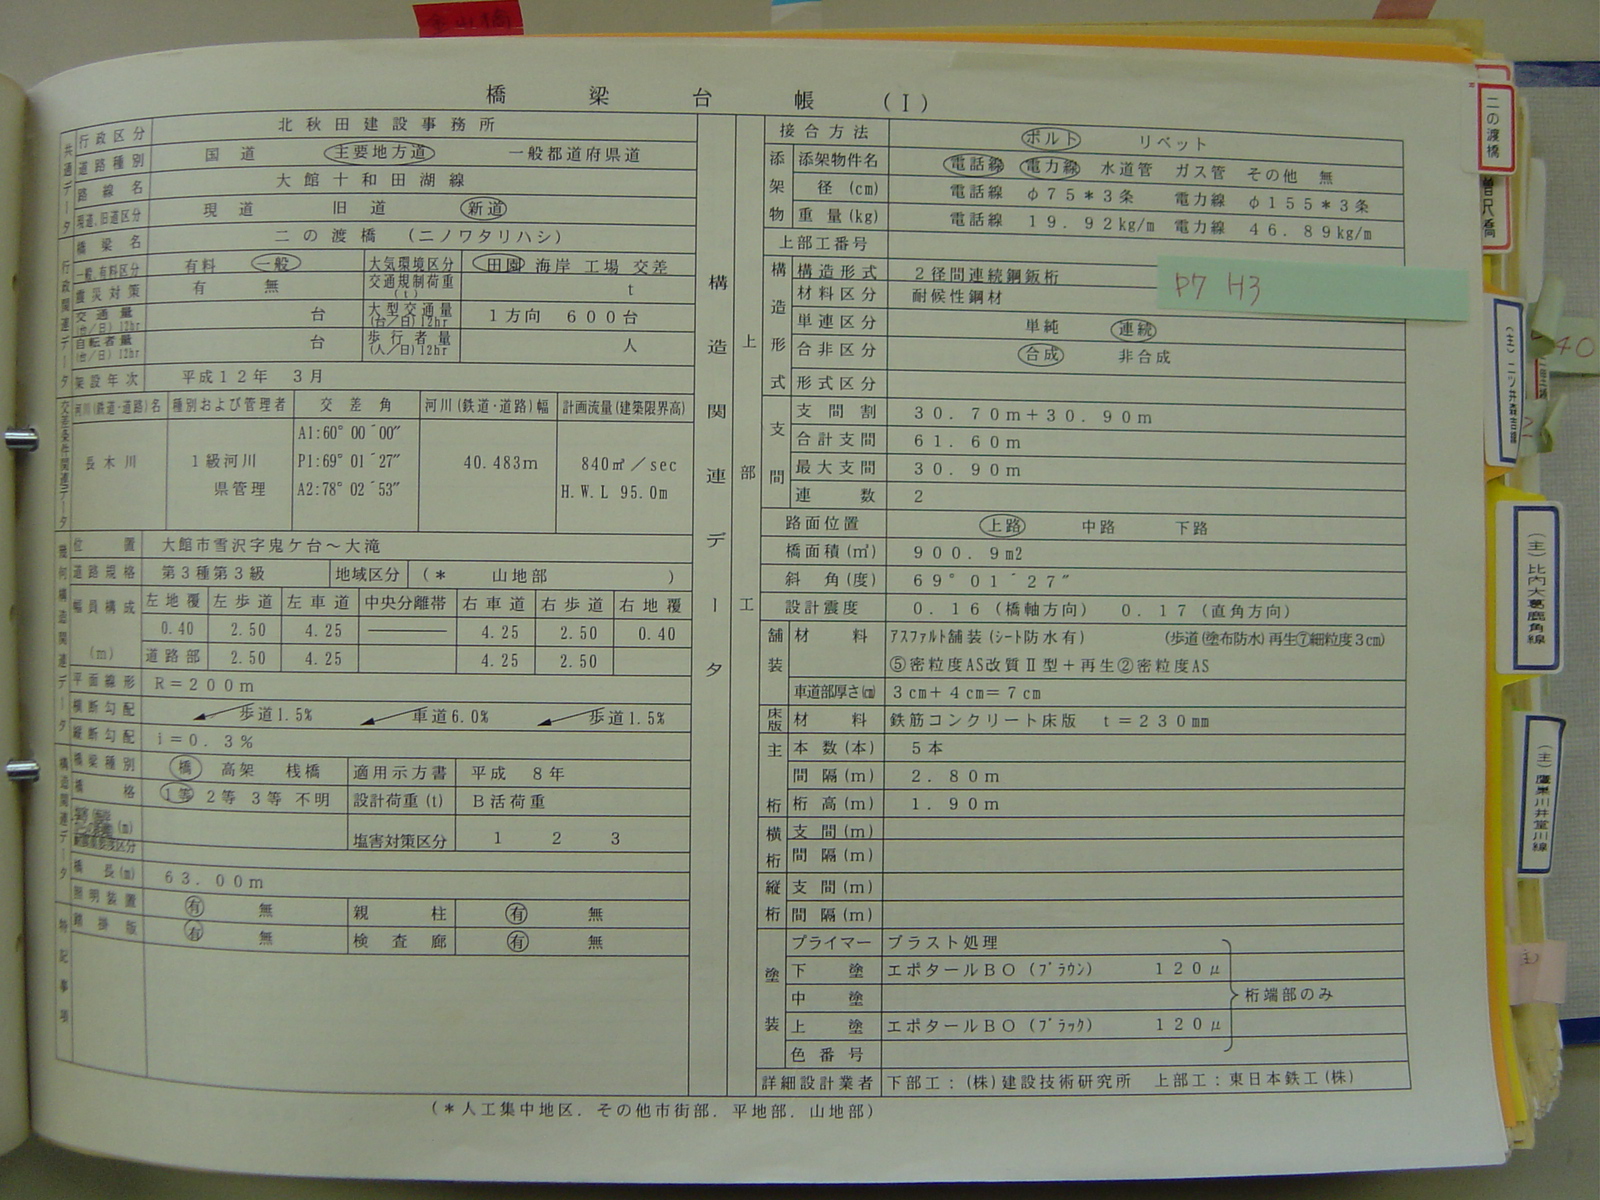 橋梁台帳 (Ⅰ)
共通データ
行政区分 北秋田建設事務所
道路種別 国道 主要地方道 一般都道府県道
路線名 大館十和田湖線
現道、旧道区分 現道 旧道 新道
橋梁名 二の渡橋 (ニノワタリハシ)
行政関連データ
一般、有料区分 有料 一般 大気環境区分 田園 海岸 工場 交差
震災対策 有 無 交通規制荷重(t) t
交通量(台/日)12hr 台 大型交通量(台/日)12hr 1方向 600台
自転者量(台/日)12hr 台 歩行者量(人/日)12hr 人
架設年次 平成12年 3月
交差条件関連データ
河川(鉄道・道路)名 種別および管理者 交差角 河川(鉄道・道路)幅 計画流量(建築限界高)
長木川 1級河川 県管理
A1:60°00´00″
P1:69°01´27″
A2:78°02´53″
40.483m
840㎥/sec
H.W.L 95.0m
幾何構造関連データ
位置 大館市雪沢字鬼ケ台~大滝
道路規格 第3種第3級 地域区分 (* 山地部 )
幅員構成 (m) 左地覆 左歩道 左車道 中央分離帯 右車道 右歩道 右地覆
0.40 2.50 4.25 ——— 4.25 2.50 0.40
道路部 2.50 4.25 4.25 2.50
平面線形 R=200m
横断勾配 歩道1.5% 車道6.0% 歩道1.5%
縦断勾配 i=0.3%
構造関連データ
橋梁種別 橋 高架 桟橋 適用示方書 平成 8年
橋格 1等 2等 3等 不明 設計荷重(t) B活荷重
(m) 塩害対策区分 1 2 3
橋長(m) 63.00m
照明装置 有 無 親柱 有 無
踏掛版 有 無 検査廊 有 無
特記事項
構造関連データ
上部工
接合方法 ボルト リベット
添架物
添架物件名 電話線 電力線 水道管 ガス管 その他 無
径(cm) 電話線 φ75*3条 電力線 φ155*3条
重量(kg) 電話線 19.92kg/m 電力線 46.89kg/m
上部工番号
構造形式
構造形式 2径間連続鋼鈑桁
材料区分 耐候性鋼材
単連区分 単純 連続
合非区分 合成 非合成
形式区分
支間
支間割 30.70m+30.90m
合計支間 61.60m
最大支間 30.90m
連数 2
路面位置 上路 中路 下路
橋面積(㎡) 900.9m2
斜角(度) 69°01´27″
設計震度 0.16(橋軸方向) 0.17(直角方向)
舗装
材料 アスファルト舗装(シート防水有) (歩道(塗布防水)再生⑦細粒度3cm)
⑤密粒度AS改質Ⅱ型+再生②密粒度AS
車道部厚さ(㎝) 3cm+4cm=7cm
床版 材料 鉄筋コンクリート床版 t=230mm
主桁
本数(本) 5本
間隔(m) 2.80m
桁高(m) 1.90m
横桁
支間(m)
間隔(m)
縦桁
支間(m)
間隔(m)
塗装
プライマー ブラスト処理
下塗 エポタールBO(ブラウン) 120μ
中塗
上塗 エポタールBO(ブラック) 120μ
色番号
桁端部のみ
詳細設計業者 下部工:(株)建設技術研究所 上部工:東日本鉄工(株)
(*人工集中地区.その他市街部.平地部.山地部)
P7 H3
二の渡橋
(主)比内大葛鹿角線
(主)鷹巣川井堂川線